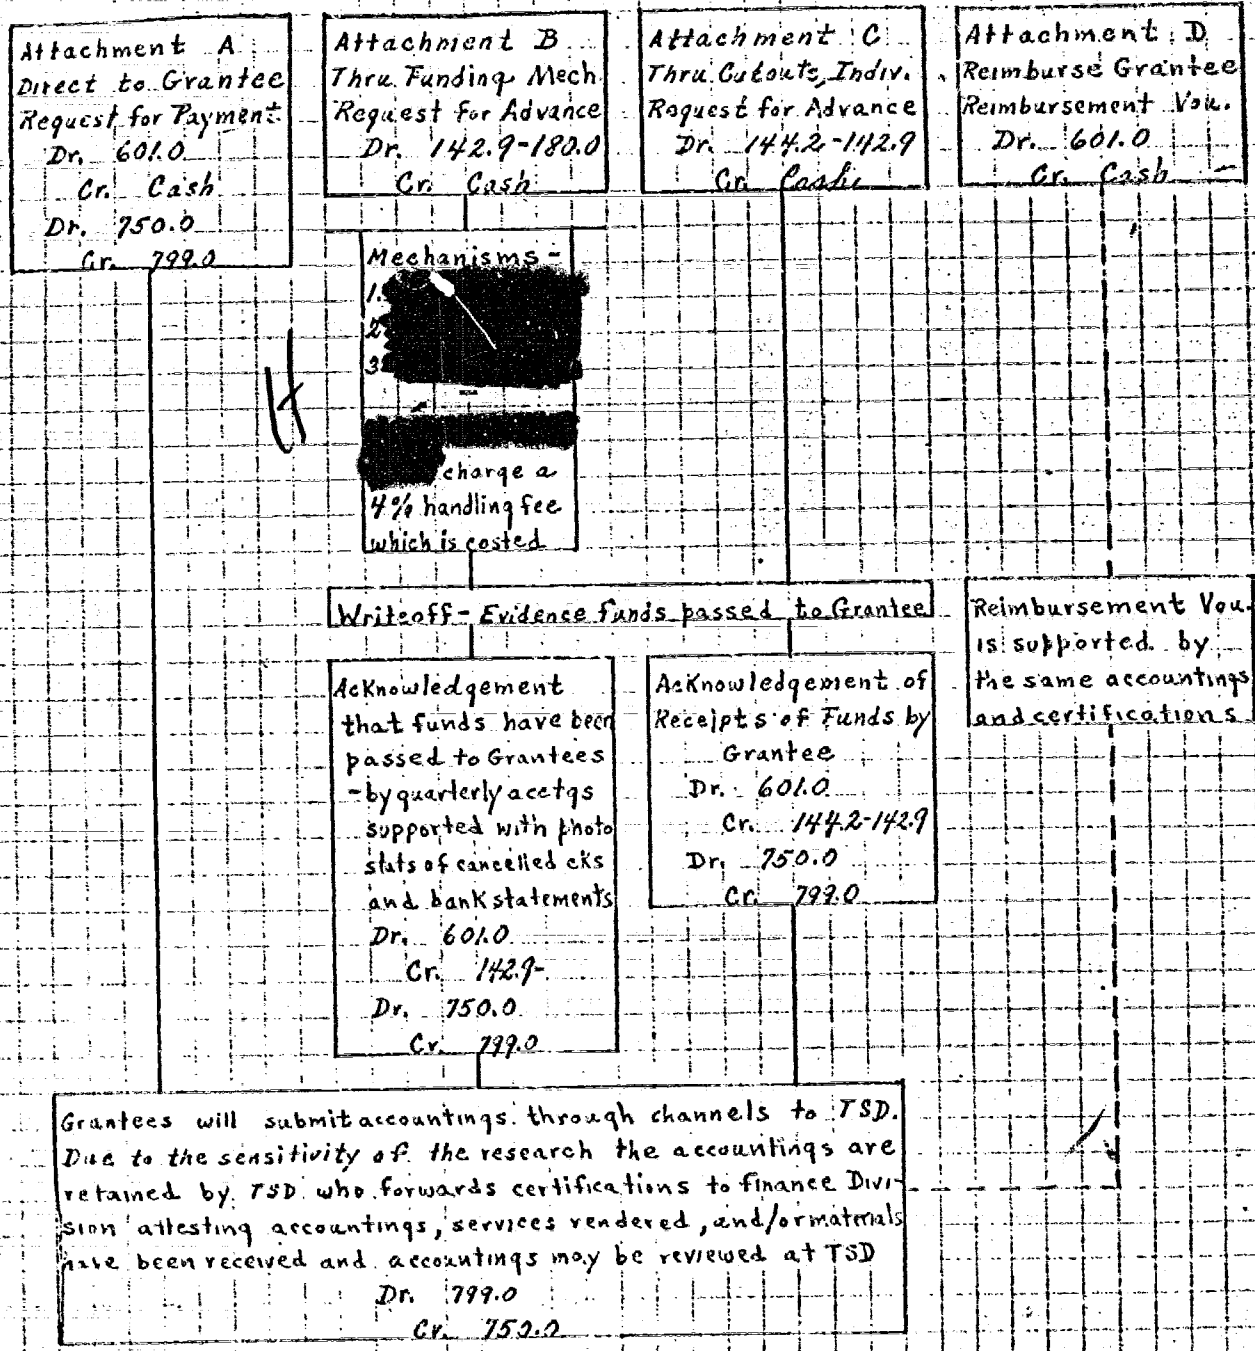 Attachment A
Direct to Grantee
Request for Payment
Dr. 601.0
Cr. Cash
Dr. 750.0
Cr. 799.0
Attachment B
Thru Funding Mech
Request for Advance
Dr. 142.9-180.0
Cr. Cash
Attachment C
Thru Cutouts, Indiv.
Request for Advance
Dr. 144.2-142.9
Cr. Cash
Attachment D
Reimburse Grantee
Reimbursement Vou.
Dr. 601.0
Cr. Cash
Mechanisms-
1.
2
3
charge a
4% handling fee
which is costed
H
Writeoff - Evidence funds passed to Grantee
Acknowledgement
that funds have been
passed to Grantees
-by quarterly acctgs
supported with photo
stats of cancelled cks
and bank statements
Dr. 601.0
Cr. 142.9-
Dr. 750.0
Cr. 799.0
Acknowledgement of
Receipts of Funds by
Grantee
Dr. 601.0
Cr. 144.2-142.9
Dr. 750.0
Cr. 799.0
Reimbursement Vou.
is supported by
the same accountings
and certifications
Grantees will submit accountings through channels to TSD.
Due to the sensitivity of the research the accountings are
retained by TSD who forwards certifications to finance Divi-
sion attesting accountings, services rendered, and/or materials
have been received and accountings may be reviewed at TSD
Dr. 799.0
Cr. 750.0